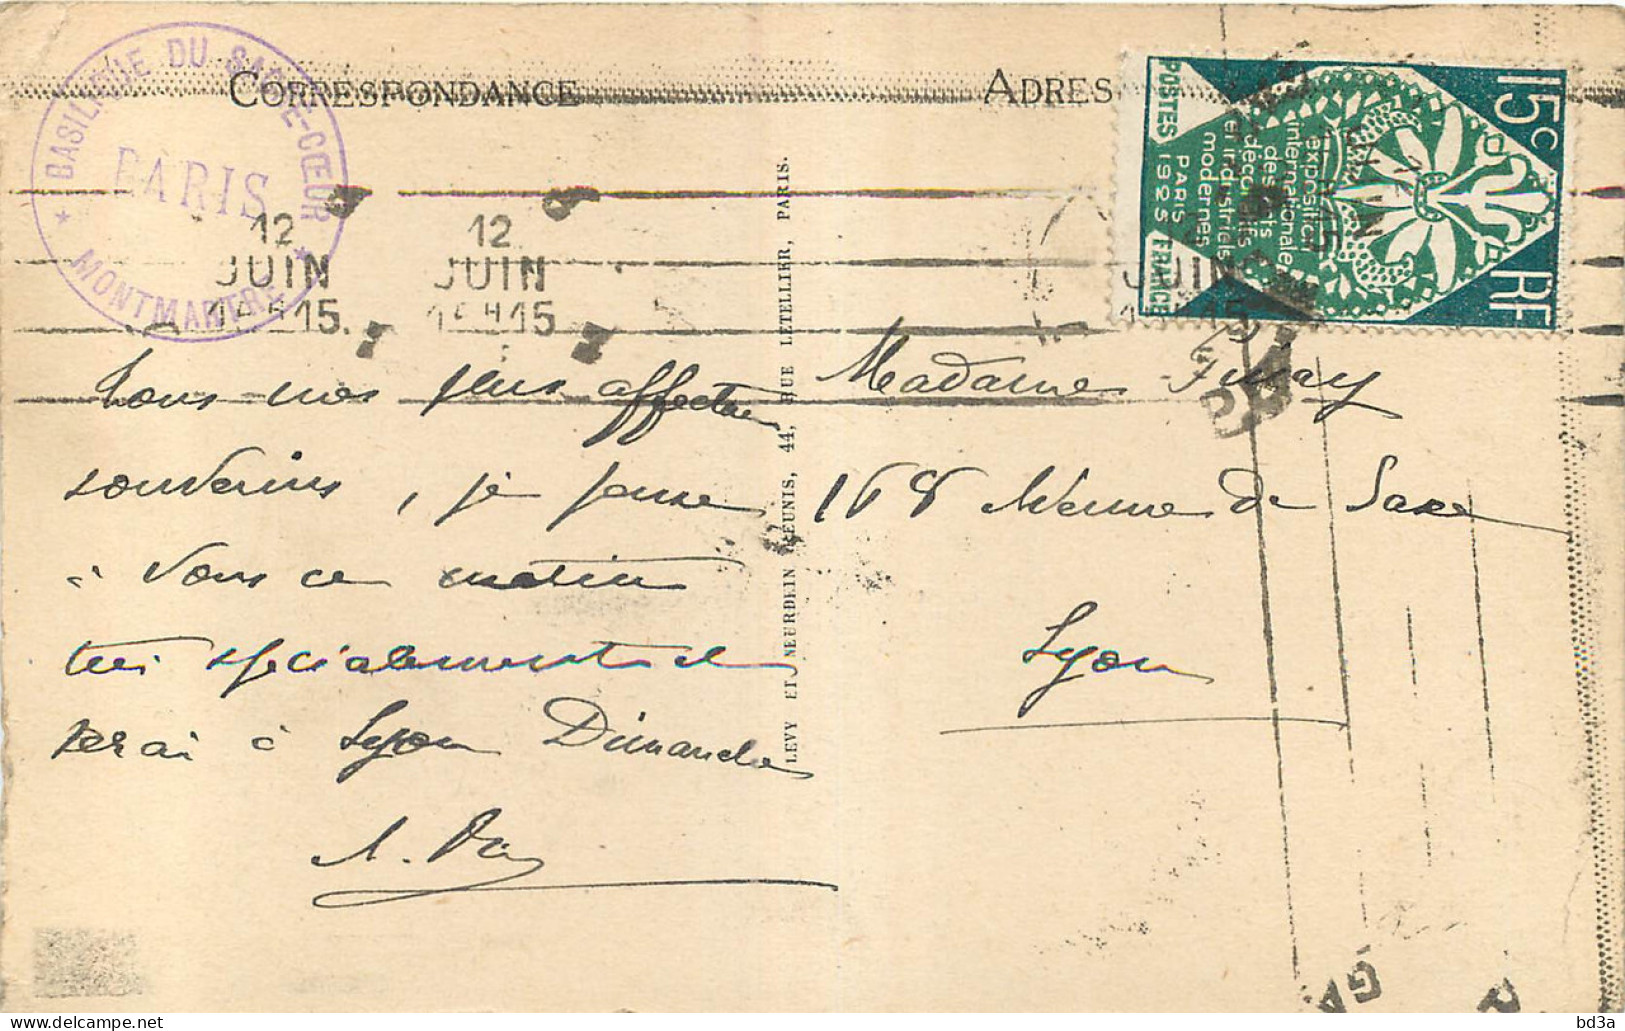 BASILIQUE DU SACRÉ-CŒUR
PARIS
MONTMARTRE
CORRESPONDANCE
ADRES
12
JUIN
15
12
JUIN
15
JUIN
15c
RF
POSTES
FRANCE
exposition
internationale
des arts
décoratifs
et industriels
modernes
PARIS
1925
Tous nos plus affectueux
souvenirs, je pense
à vous ce matin
très spécialement et
serai à Lyon Dimanche
Madame
168 Avenue de Saxe
Lyon
LEVY ET NEURDEIN RÉUNIS, 44, RUE LETELLIER, PARIS.
bd3a